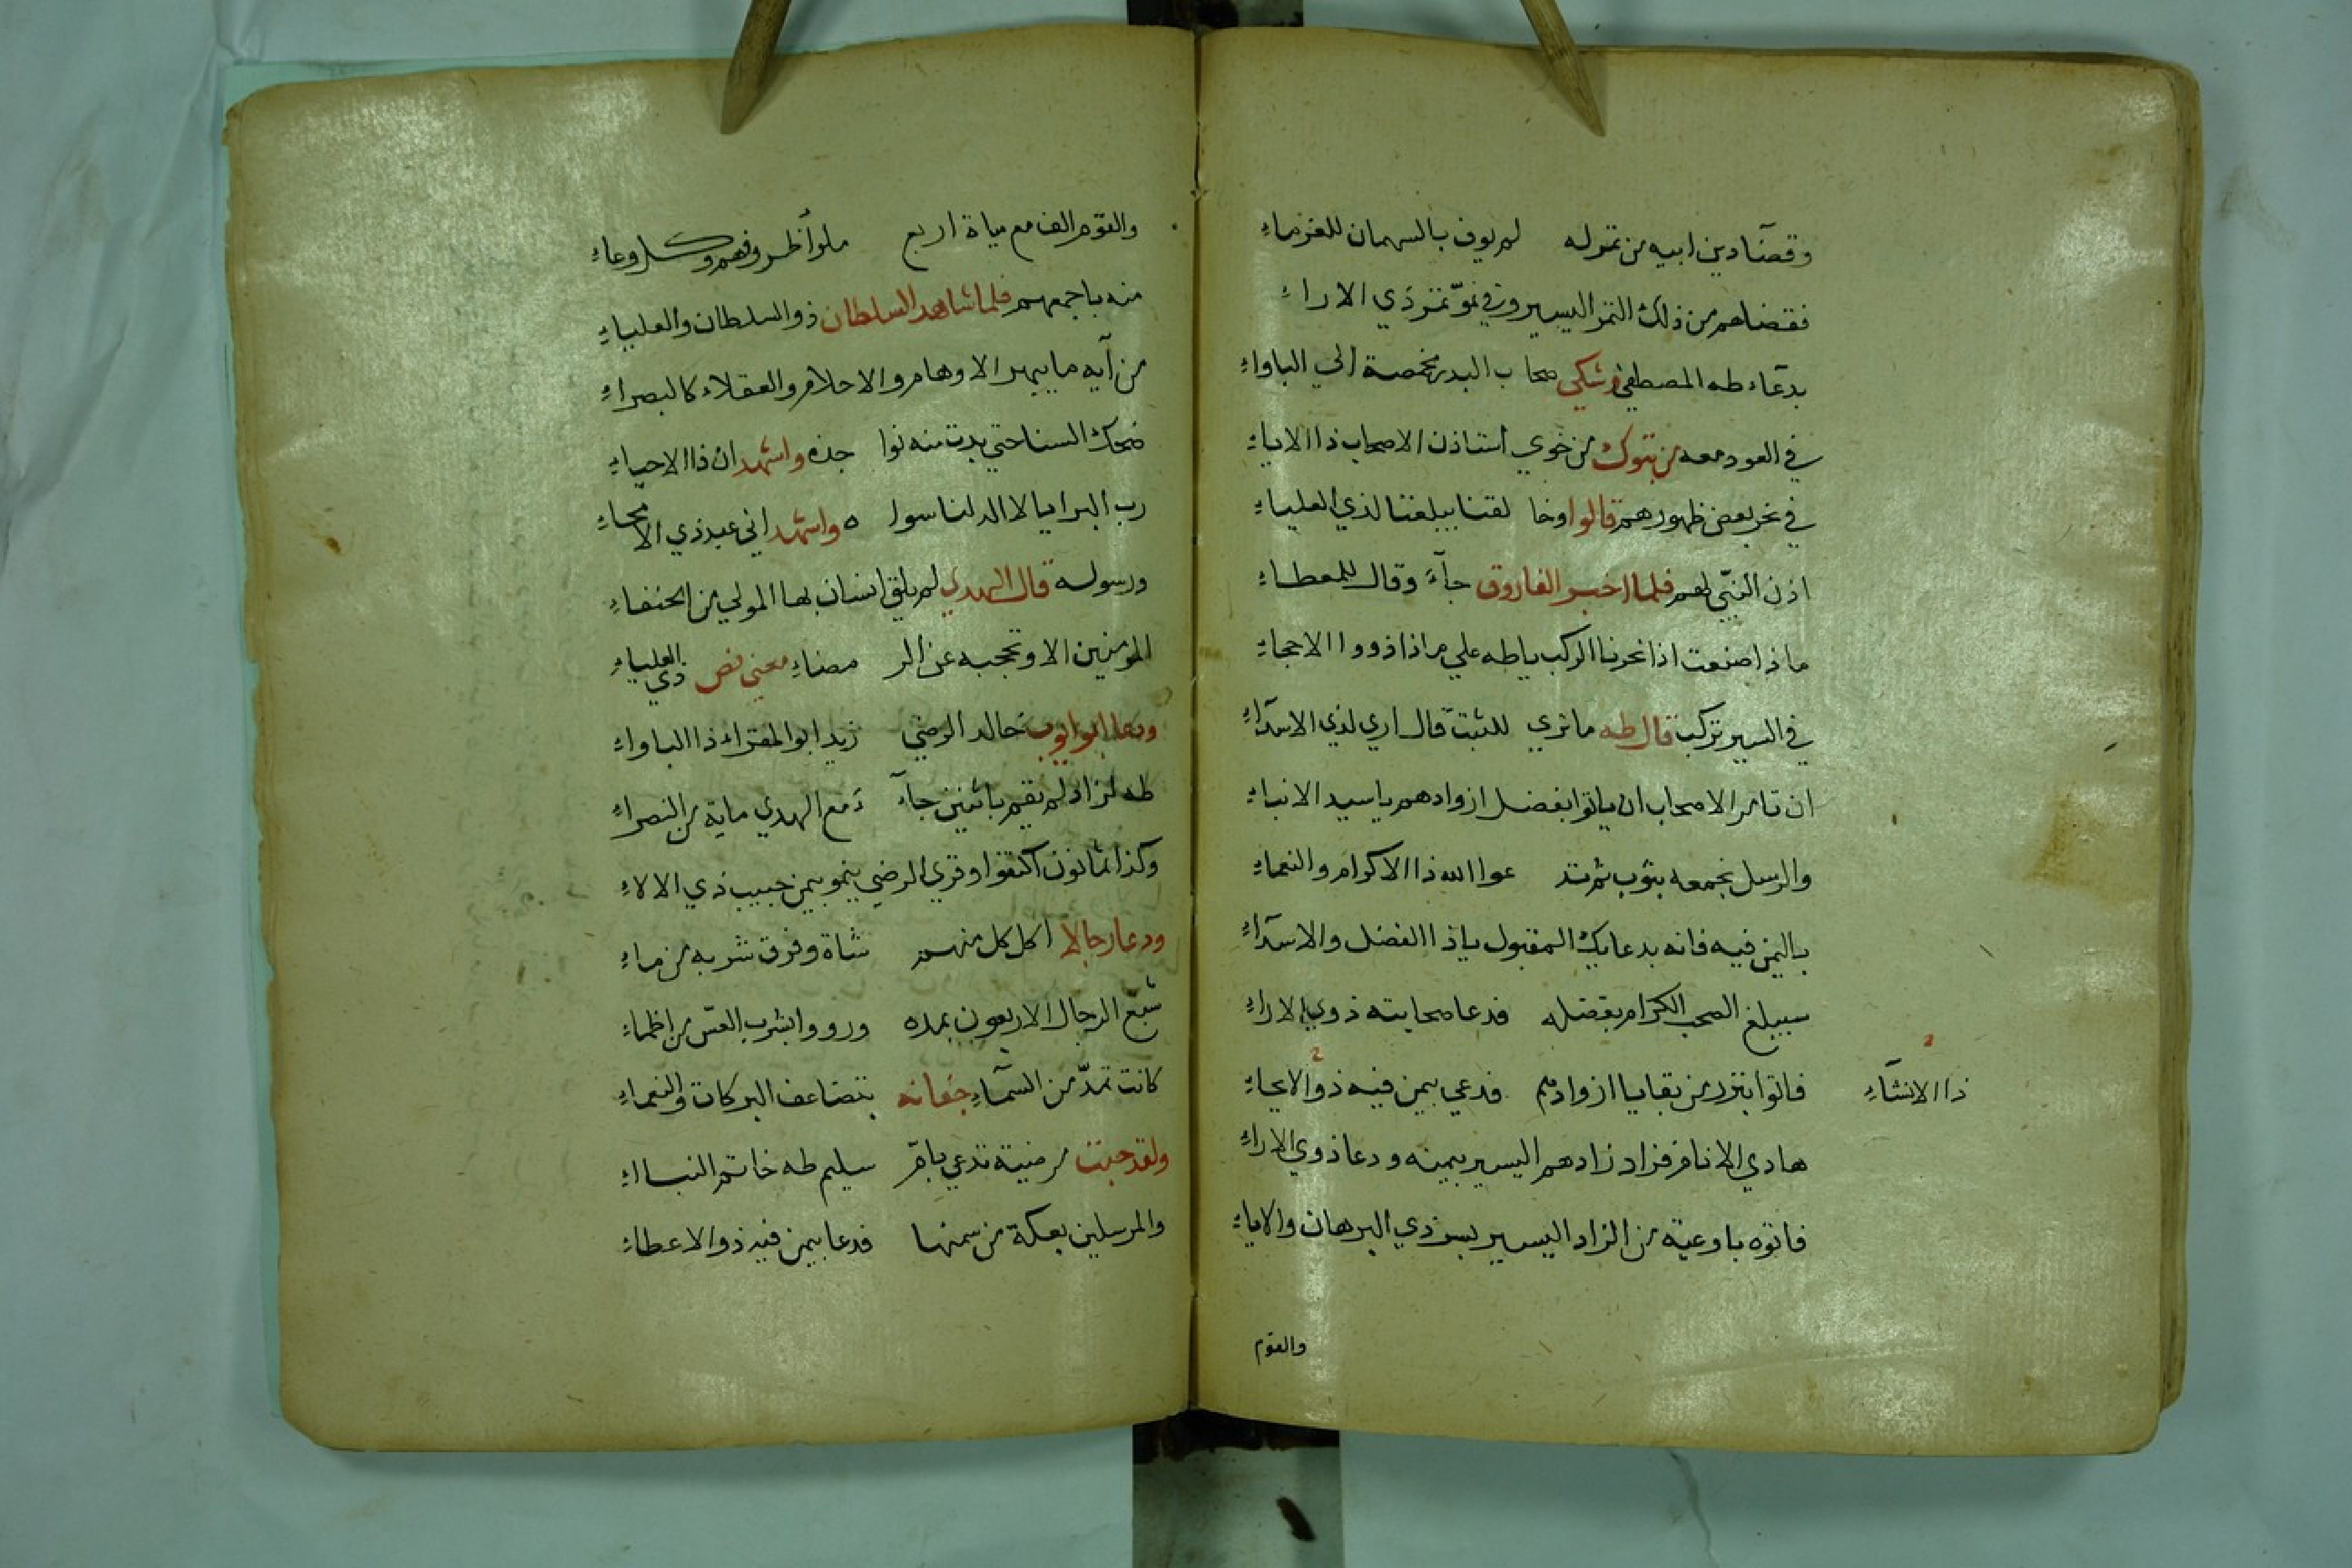 وقضآ دين ابيه من تموله لم يوف بالسهمان للغرماء
فقضاهم من ذلك التمر اليسير وفي نمو تمر ذي الاراء
بدعاء طه المصطفي وشكي صحاب البدر مخمصة الي الباواء
في العود معه من تبوك من خوي استاذن الاصحاب ذا الاباء
في نحر بعض ظهورهم قالوا وخا لقنا يبلغنا لذي العلياء
اذن النبي لهم فلما اخبر الفاروق جآء وقال للمعطاء
ماذا صنعت اذا نحرنا الركب يا طه علي ماذا ذووا الاحجاء
في السير تركب قال طه ما تري للثبت قال اري لذي الاسدآء
ان تامر الاصحاب ان ياتوا بفضل ازوادهم يا سيد الانباء
والرسل نجمعه بثوب ثم تد عوا الله ذا الاكرام والنعماء
باليمن فيه فانه بدعايك المقبول ياذا الفضل والاسدآء
سيبلغ الصحب الكرام بفضله فدعا صحابته ذوي الاراء
فاتوا بنزر من بقايا ازوادهم فدعي بيمن فيه ذو الايحاء
ذا الانشآء
هادي الانام فزاد زادهم اليسير بيمينه ودعا ذوي الاراء
فاتوه باوعية من الزاد اليسير بسر ذي البرهان والاباء
والقوم
والقوم الف مع مياة اربع ملوا ظروفهم وكل وعاء
منه باجمعهم فلما شاهد السلطان ذو السلطان والعلياء
من آيه ما يبهر الاوهام والاحلام والعقلاء كالبصراء
ضحك السنا حتي بدت منه نوا جذه واشهد ان ذا الاحياء
رب البرايا لا اله لنا سوا ه واشهد اني عبد ذي الانحاء
ورسوله قال الهدي لم يلق انسان بها المولي من الحنفاء
المومنين الا وتحجبه عن الر مضاء معني نص ذي العلياء
ودعا ابو ايوب خالد الرضي زيد ابو المقراء ذا الباواء
طه لزاد لم يقم باثنين جآ ء مع الهدي ماية من النصراء
وكذا ثمانون اكتفوا وقري الرضي ينمو بيمن حبيب ذي الالاء
ودعا رجالا اكل كل منهم شاة وفرق شربه من ماء
شبع الرجال الاربعون بمده ورووا بشرب العس من اظماء
كانت تمد من السمآء جفانه بتضاعف البركات والنعماء
ولقد حبت مرضية تدعي بام سليم طه خاتم النباء
والمرسلين بعكة من سمنها فدعا بيمن فيه ذو الاعطاء